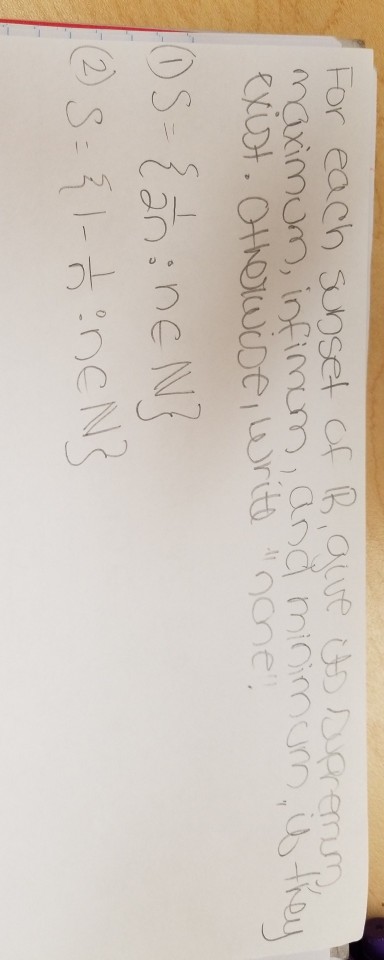 For each subset of ℝ, give its supremum,
maximum, infimum, and minimum, if they
exist. Otherwise, write "none".
① S = { 1/2n : n ∈ ℕ }
② S = { 1 - 1/n : n ∈ ℕ }